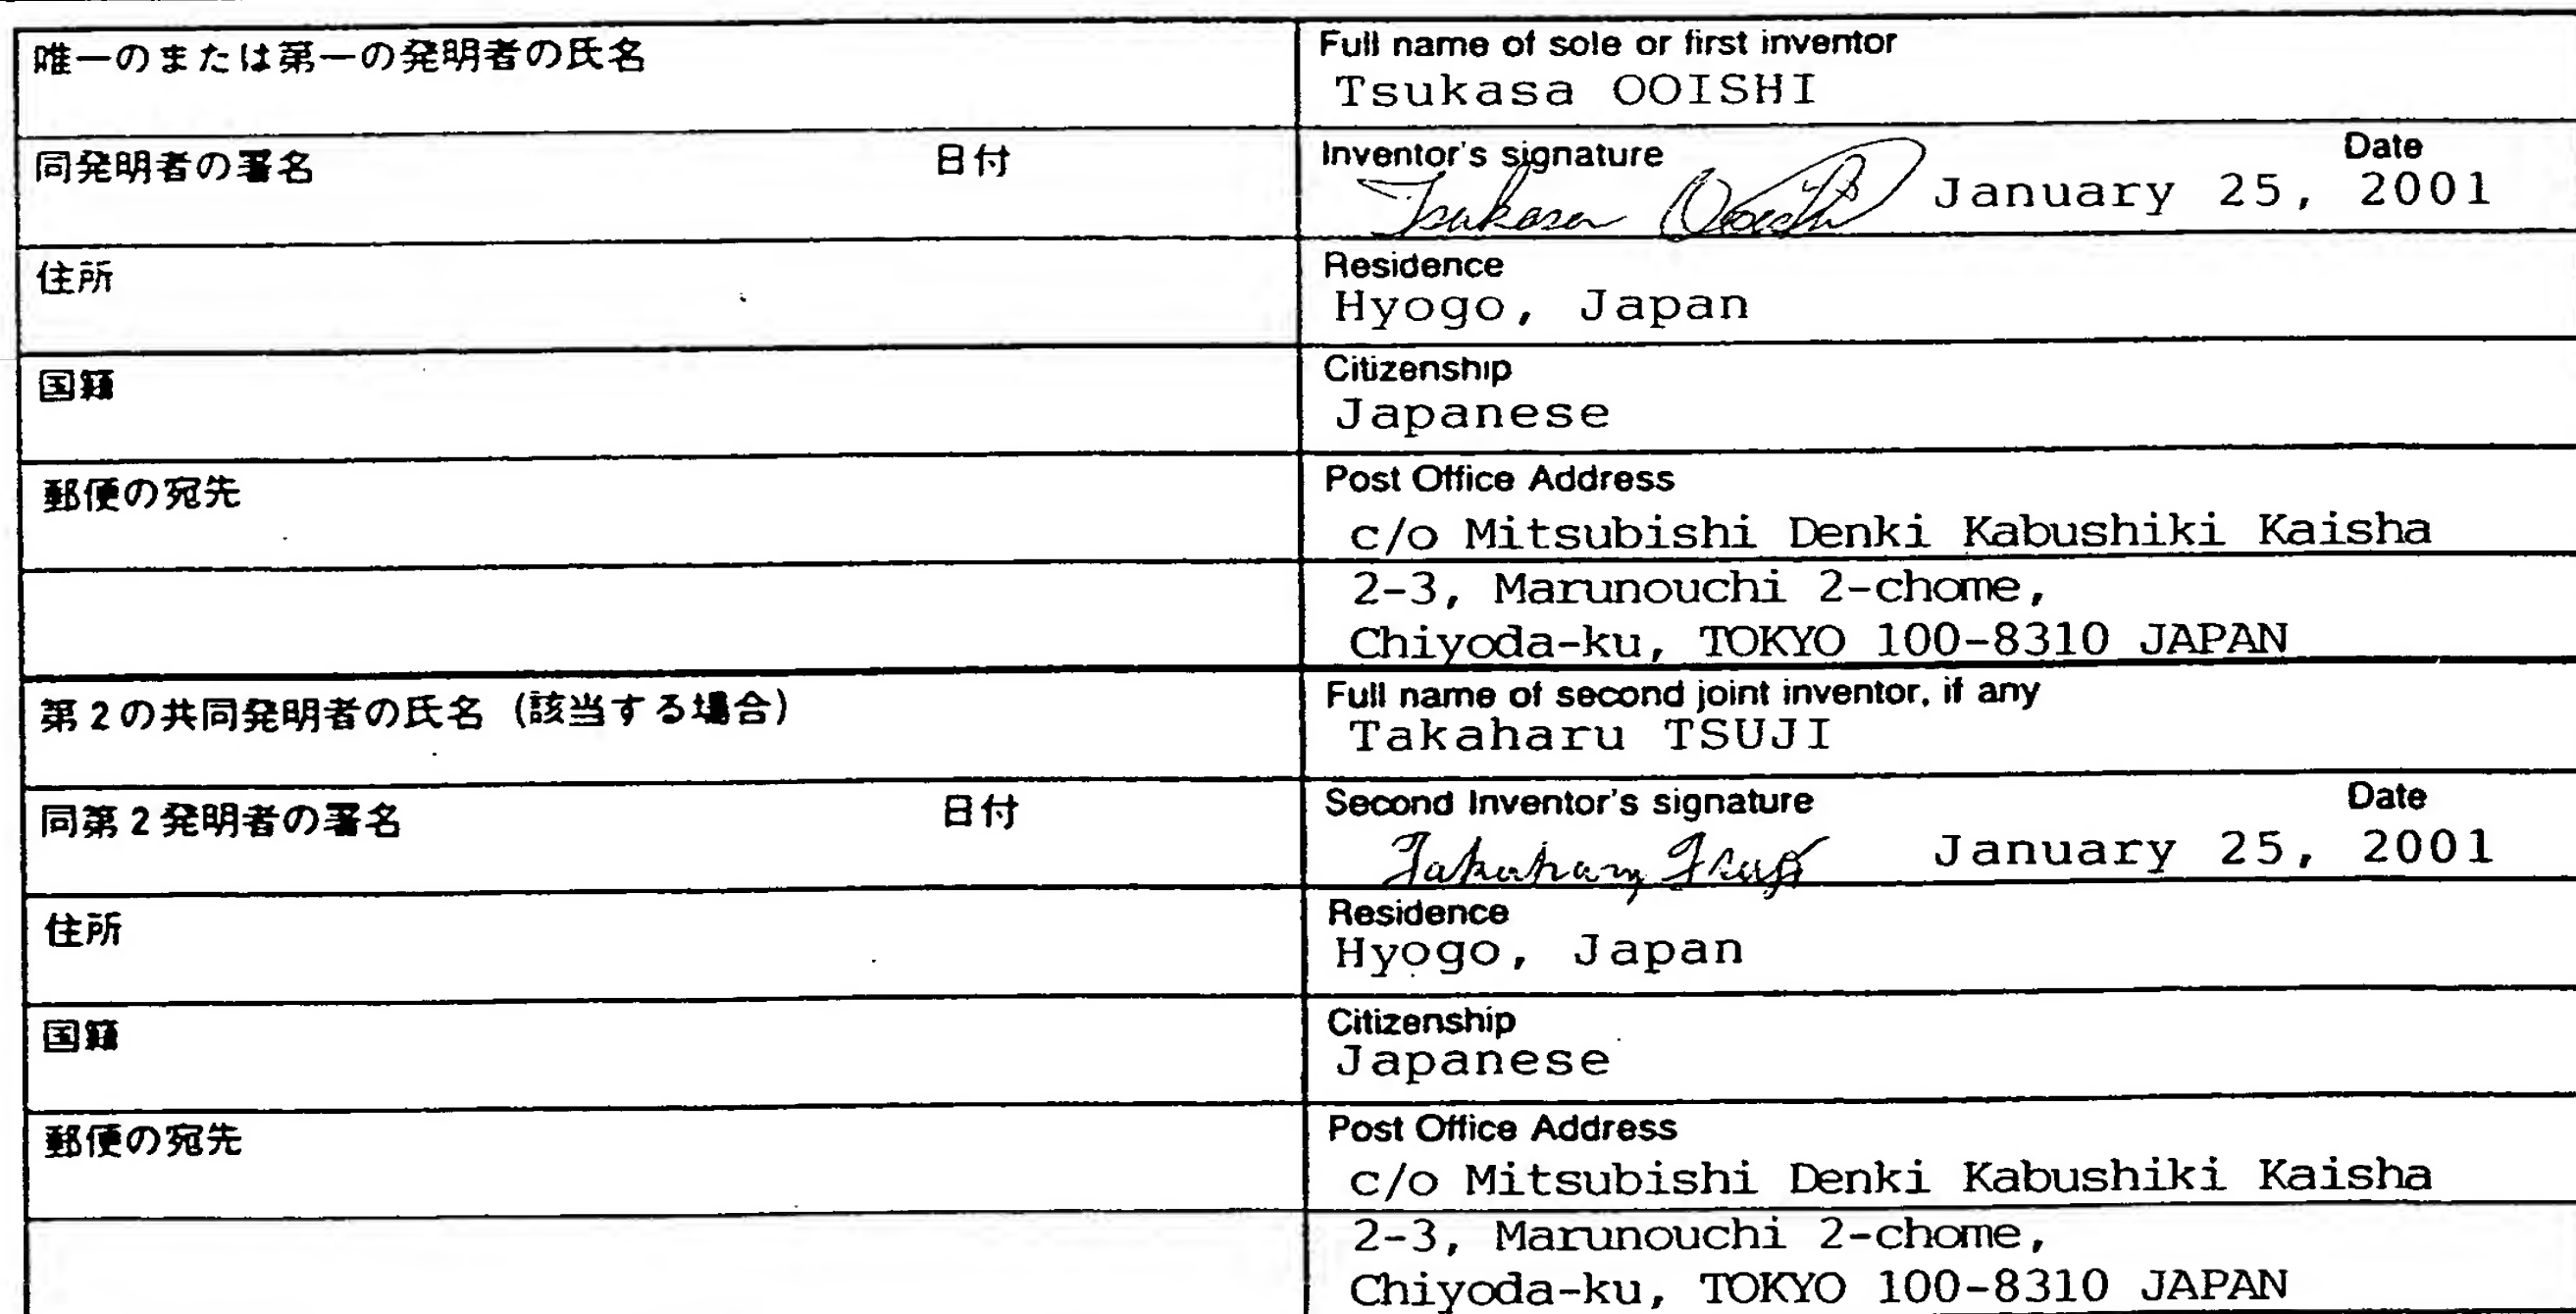 唯一のまたは第一の発明者の氏名
Full name of sole or first inventor
Tsukasa OOISHI
同発明者の署名 日付
Inventor's signature Date
Tsukasa Ooishi January 25, 2001
住所
Residence
Hyogo, Japan
国籍
Citizenship
Japanese
郵便の宛先
Post Office Address
c/o Mitsubishi Denki Kabushiki Kaisha
2-3, Marunouchi 2-chome,
Chiyoda-ku, TOKYO 100-8310 JAPAN
第2の共同発明者の氏名 (該当する場合)
Full name of second joint inventor, if any
Takaharu TSUJI
同第2発明者の署名 日付
Second Inventor's signature Date
Takaharu Tsuji January 25, 2001
住所
Residence
Hyogo, Japan
国籍
Citizenship
Japanese
郵便の宛先
Post Office Address
c/o Mitsubishi Denki Kabushiki Kaisha
2-3, Marunouchi 2-chome,
Chiyoda-ku, TOKYO 100-8310 JAPAN